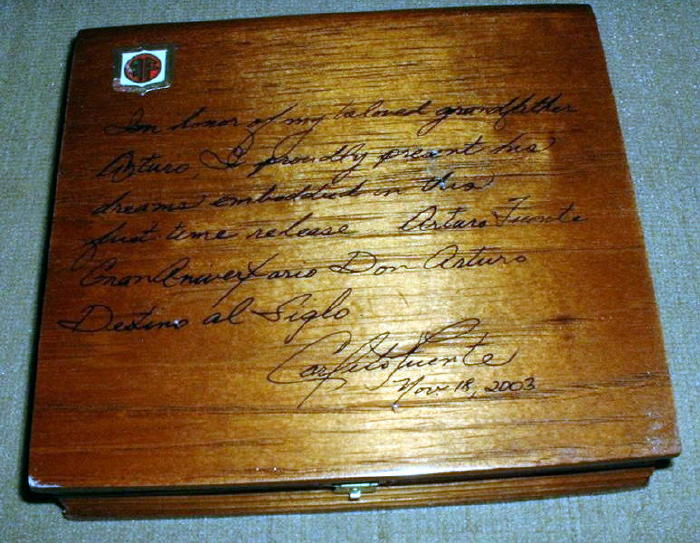 In honor of my beloved grandfather
Arturo, I proudly present his
dreams embodied in this
first time release Arturo Fuente
Gran AniverXario Don Arturo
Destino al Siglo
Carlito Fuente
Nov. 18, 2003